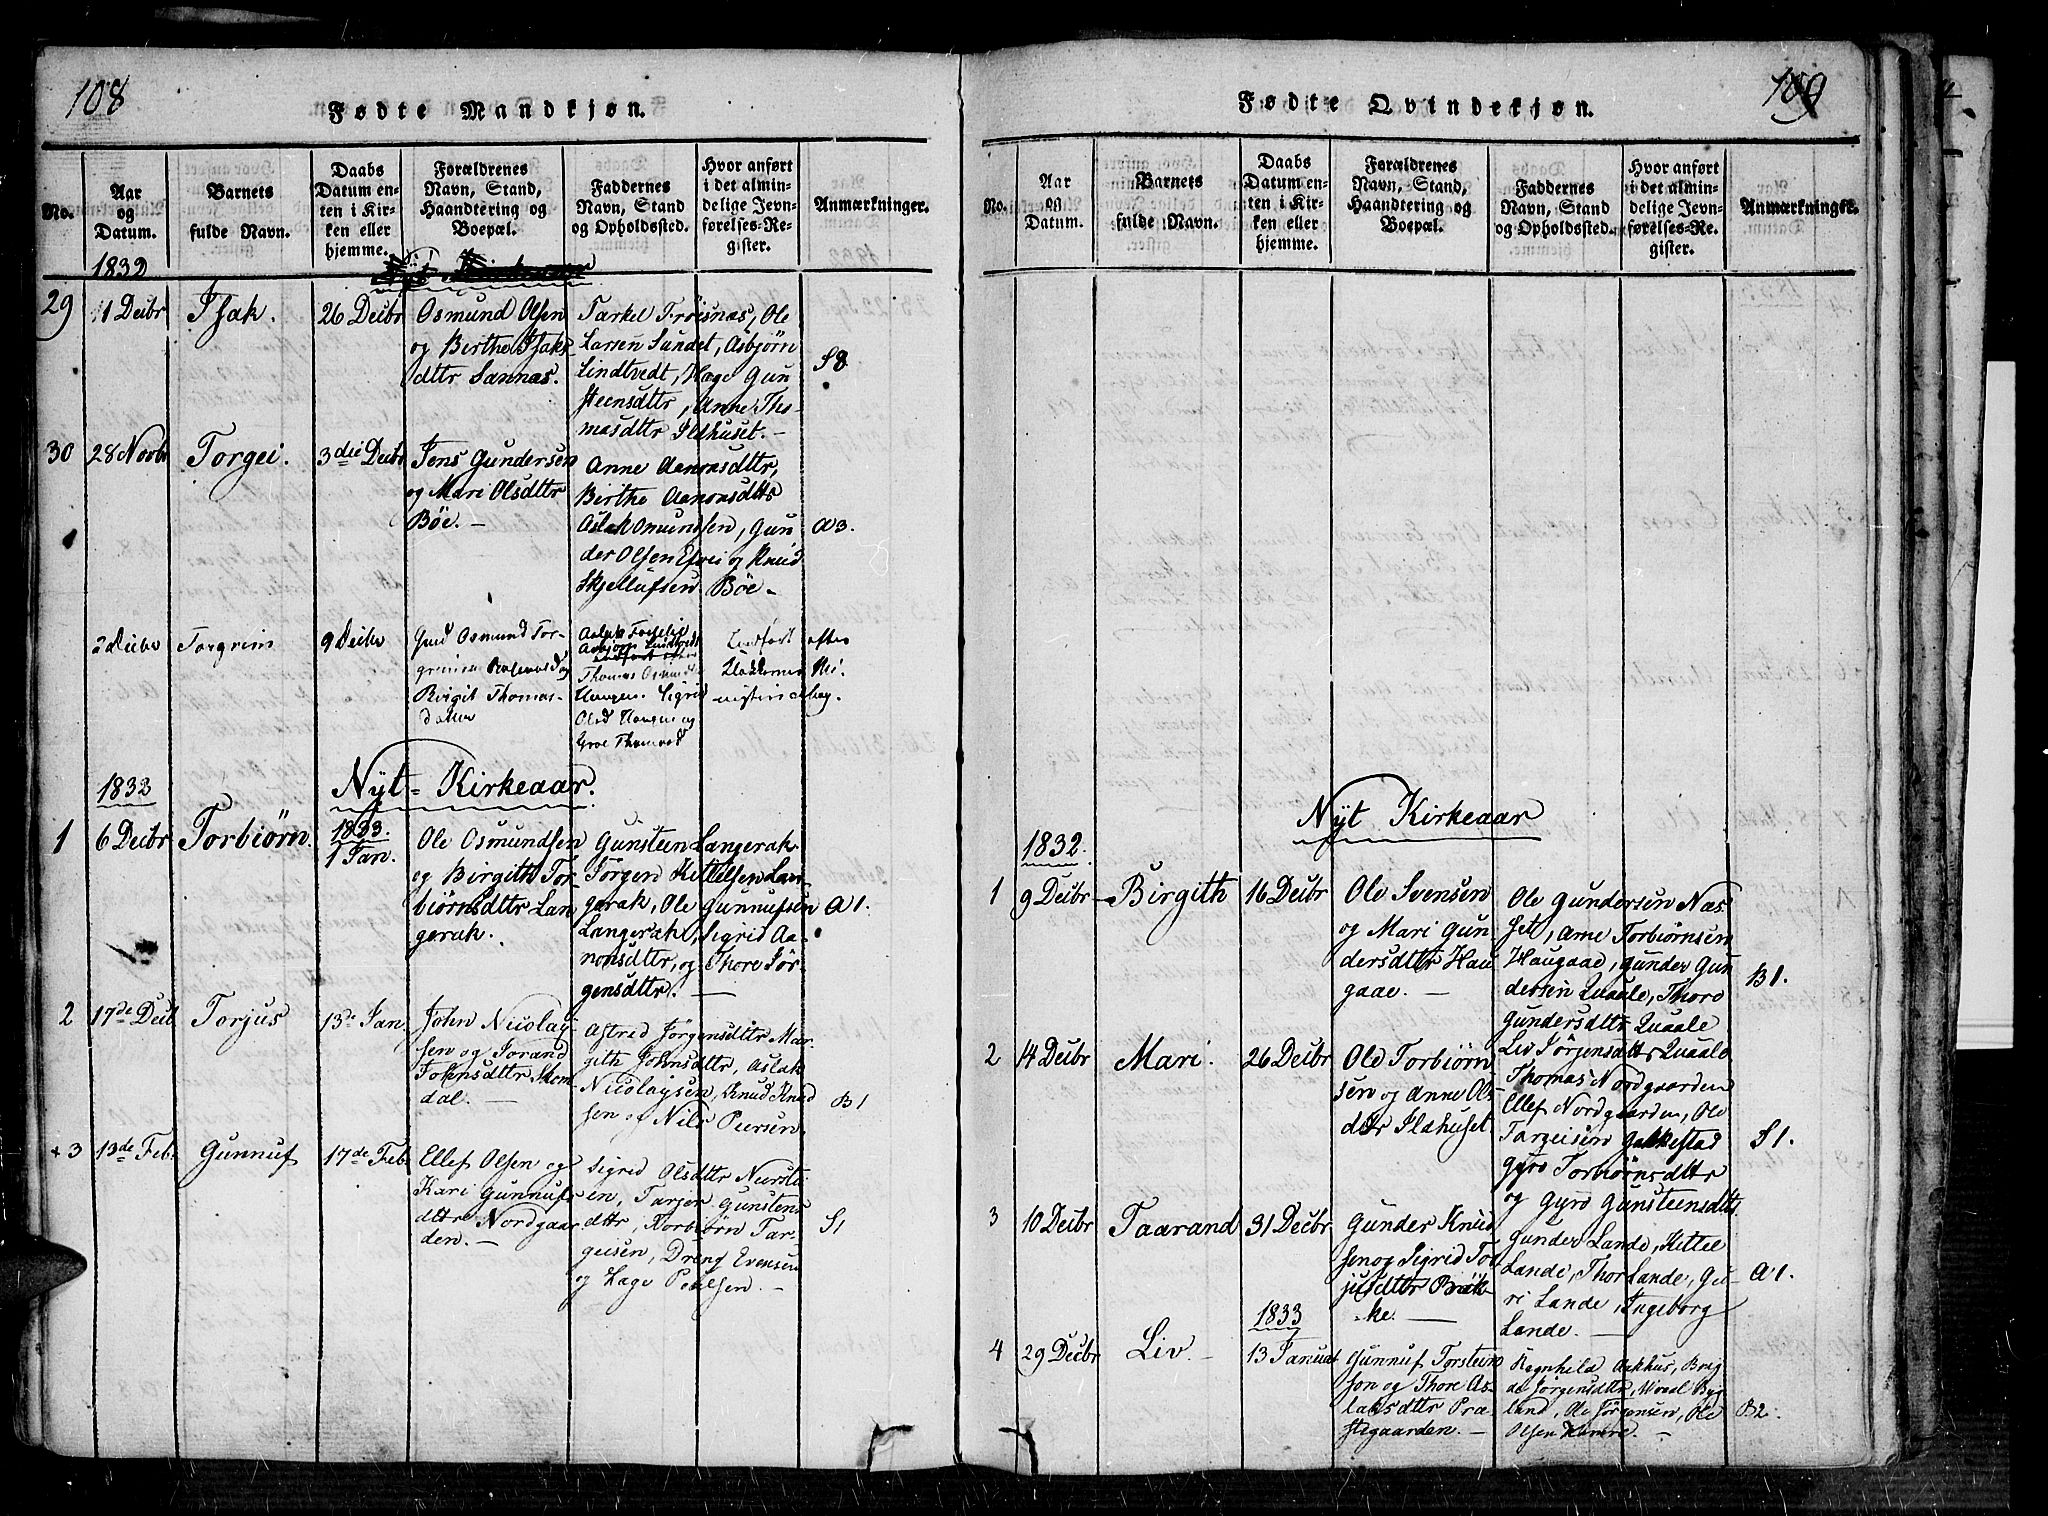 108
Fødte Mandkjøn.
No.
Aar
og
Datum.
Barnets
fulde Navn.
Daabs
Datum en-
ten i Kir-
ken eller
hjemme.
Forældrenes
Navn, Stand,
Haandtering og
Boepæl.
Faddernes
Navn, Stand
og Opholdssted.
Hvor anført
i det almin-
delige Jevn-
førelses-Re-
gister.
Anmærkninger.
1832
29
11 Decbr
Isak.
26 Decbr
Osmund Olsen
og Birthe Isaks
dttr Sannæs.
Tarkel Frøisnæs, Ole
Larsen Sundet, Asbjørn
Lindtvedt, Hæge Gun
steensdttr, Anne Tho-
masdttr Ildhuset.
S8
30
28 Novbr
Torgei.
3die Decbr
Jens Gundersen
og Mari Olsdttr
Böe.
Anne Aanonsdttr,
Birthe Aanonsdttr
Aslak Osmundsen, Gun
der Olsen og Knud
Skjellufsen Böe
A3.
2 Decbr
Torgrim
9 Decbr
Gmd Osmund Tor-
grimsen
Birgit Thomas-
datter
Thomas Osmundsen
Haugen. Sigrid
Olsd Haugen og
Groe Thomasd
Indført efter
Klokkerens Mi-
nisterialbog.
Nÿt Kirkeaar.
1832
1
6 Decbr
Torbiörn.
1833.
1 Jan.
Ole Osmundsen
og Birgith Tor-
biörnsdttr Lan
gerak.
Gunsteen Langerak
Jörgen Kittelsen Lan
gerak, Ole Gunnufsen
Langerak, Sigrid Aa-
nonsdttr, og Thore Jör-
gensdttr.
A1.
2
17de Decb
Torjus
13de Jan
John Nicolaj
sen og Jorand
Johnsdttr Skom
dal.
Astrid Jörgensdttr Mar
gith Johnsdttr, Aslak
Nicolaysen, Knud Knud
sen og Nils Persen.
B1
+3
13de Feb.
Gunnuf
17de Feb
Ellef Olsen og
Kari Gunnufs
dttr Nordgaar
den.
Sigrid Olsdttr Nærstö
en, Tarjer Gunstens
dttr, Torbiörn Tar
geisen, Dreng Evensen
og Lage Poulsen.
S1
109
Fødte Qvindekjøn.
No.
Aar
og
Datum.
Barnets
fulde Navn.
Daabs
Datum en-
ten i Kir-
ken eller
hjemme.
Forældrenes
Navn, Stand,
Haandtering og
Boepæl.
Faddernes
Navn, Stand
og Opholdssted.
Hvor anført
i det almin-
delige Jevn-
førelses-Re-
gister.
Anmærkninger.
Nÿt Kirkeaar
1832.
1
9 Decbr
Birgith
16 Decbr
Ole Svensen
og Mari Gun
dersdttr Hau
gaae.
Ole Gundersen Næs
set, Arne Torbiörnsen
Haugaae, Gunder Gun
dersen Quaale, Thore
Gundersdttr Quaale
B1.
2
14 Decbr
Mari.
26 Decbr
Ole Torbiörn
sen og Anne Ols
dttr Ildhuset.
Liv Jörjensdttr Quaale
Thomas Nordgaarden
Ellef Nordgaarden, Ole
Targeisen Gakkestad
Gyro Torbiörnsdttr
og Gyro Gunsteensdttr
S1.
3
10 Decbr
Taarand
31 Decbr
Gunder Knud
sen og Sigrid Tor
jusdttr Brök-
ke.
Gunder Lande, Kittel
Lande, Thor Lande, Gu-
ri Lande, Ingeborg
Lande.
A1.
4
29 Decbr
Liv.
1833
13 Januar
Gunnuf Torsteen
sen og Thore As-
laksdttr Præ-
stegaarden.
Ragnhild Aakhus, Brag
de Jörgensdttr, Byg
land, Ole Jörgensen, Ole
Olsen
B2.